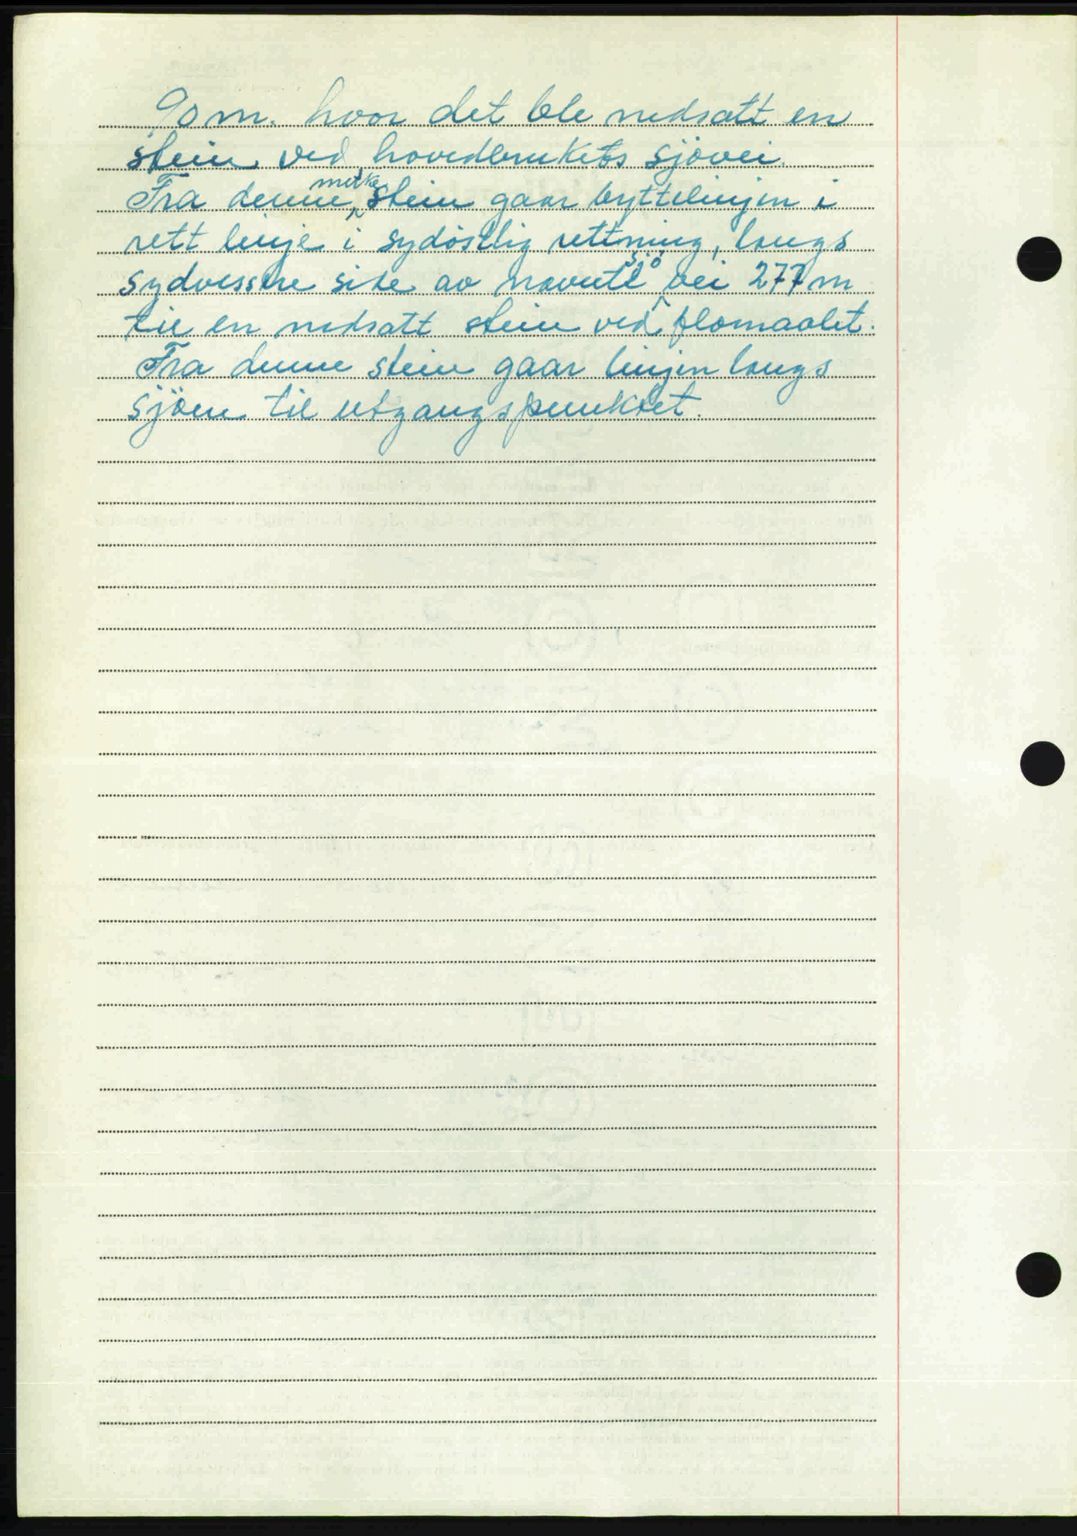 90 m. hvor det ble nedsatt en
stein ved hovedbrukets sjövei.
Fra denne merke stein gaar byttelinjen i
rett linje i sydöstlig rettning, langs
sydvestre side av nevnte sjö vei 277 m
til en nedsatt stein ved flomaalet.
Fra denne stein gaar linjen langs
sjöen til utgangspunktet.